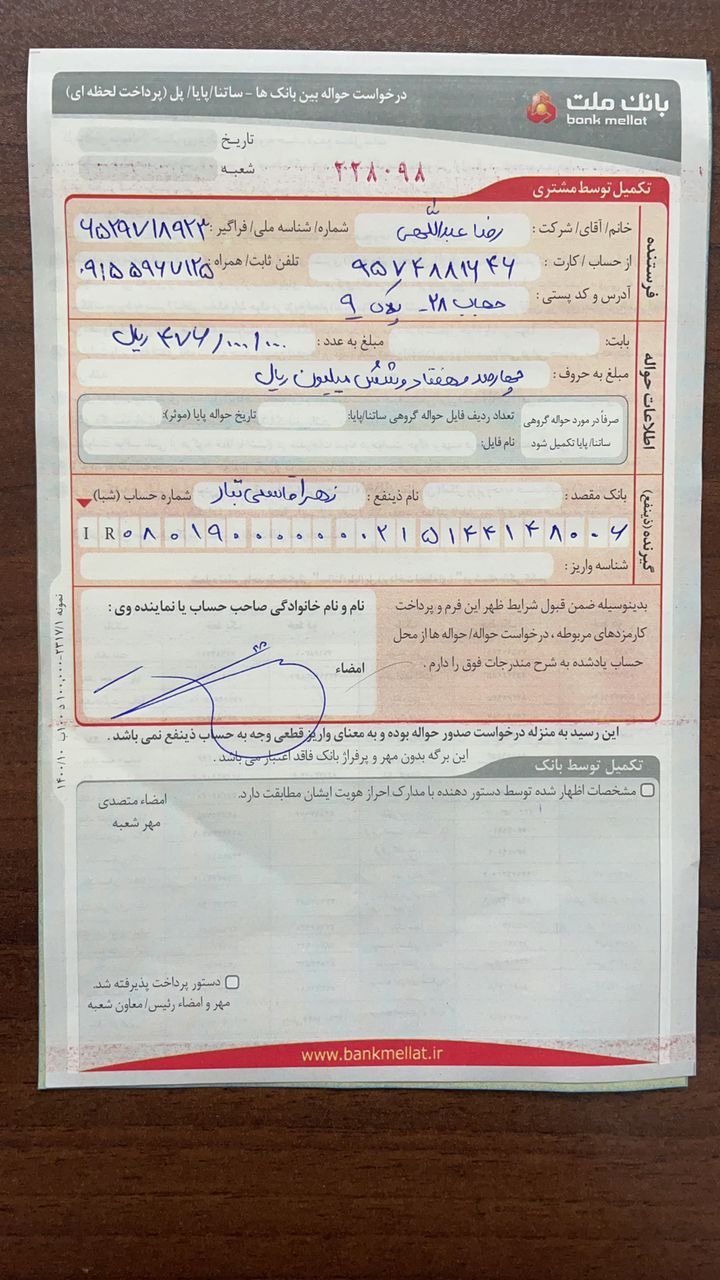 بانک ملت
bank mellat
درخواست حواله بین بانک ها - ساتنا/پایا/ پل (پرداخت لحظه ای)
تاریخ
شعبه
۲۲۸۰۹۸
تکمیل توسط مشتری
فرستنده
خانم/ آقای/ شرکت : رضا عبداللهی شماره/ شناسه ملی/ فراگیر : ۶۵۲۹۷۱۸۹۲۳
از حساب / کارت : ۹۵۷۴۸۸۱۶۴۶ تلفن ثابت/ همراه : ۰۹۱۵۵۹۶۷۱۲۵
آدرس و کد پستی : ۲۸ - پلاک ۹
اطلاعات حواله
بابت: مبلغ به عدد : ۴۷۶/۰۰۰/۰۰۰ ریال
مبلغ به حروف : چهارصد و هفتاد و شش میلیون ریال
صرفاً در مورد حواله گروهی ساتنا/ پایا تکمیل شود
تعداد ردیف فایل حواله گروهی ساتنا/پایا: تاریخ حواله پایا (موثر):
نام فایل:
گیرنده (ذینفع)
بانک مقصد : نام ذینفع : زهرا قاسمی تبار شماره حساب (شبا)
IR ۰۸۰۱۹۰۰۰۰۰۰۰۲۱۵۱۴۴۱۴۸۰۰۶
شناسه واریز :
بدینوسیله ضمن قبول شرایط ظهر این فرم و پرداخت
کارمزدهای مربوطه ، درخواست حواله/ حواله ها از محل
حساب یادشده به شرح مندرجات فوق را دارم .
نام و نام خانوادگی صاحب حساب یا نماینده وی :
امضاء
این رسید به منزله درخواست صدور حواله بوده و به معنای واریز قطعی وجه به حساب ذینفع نمی باشد .
این برگه بدون مهر و پرفراژ بانک فاقد اعتبار می باشد .
تکمیل توسط بانک
مشخصات اظهار شده توسط دستور دهنده با مدارک احراز هویت ایشان مطابقت دارد.
امضاء متصدی
مهر شعبه
دستور پرداخت پذیرفته شد.
مهر و امضاء رئیس/ معاون شعبه
www.bankmellat.ir
نمونه ۲۳۱۷/۱-۱۰۰,۰۰۰ د ۱۰۰ ب ۱۴۰۰/۱۰